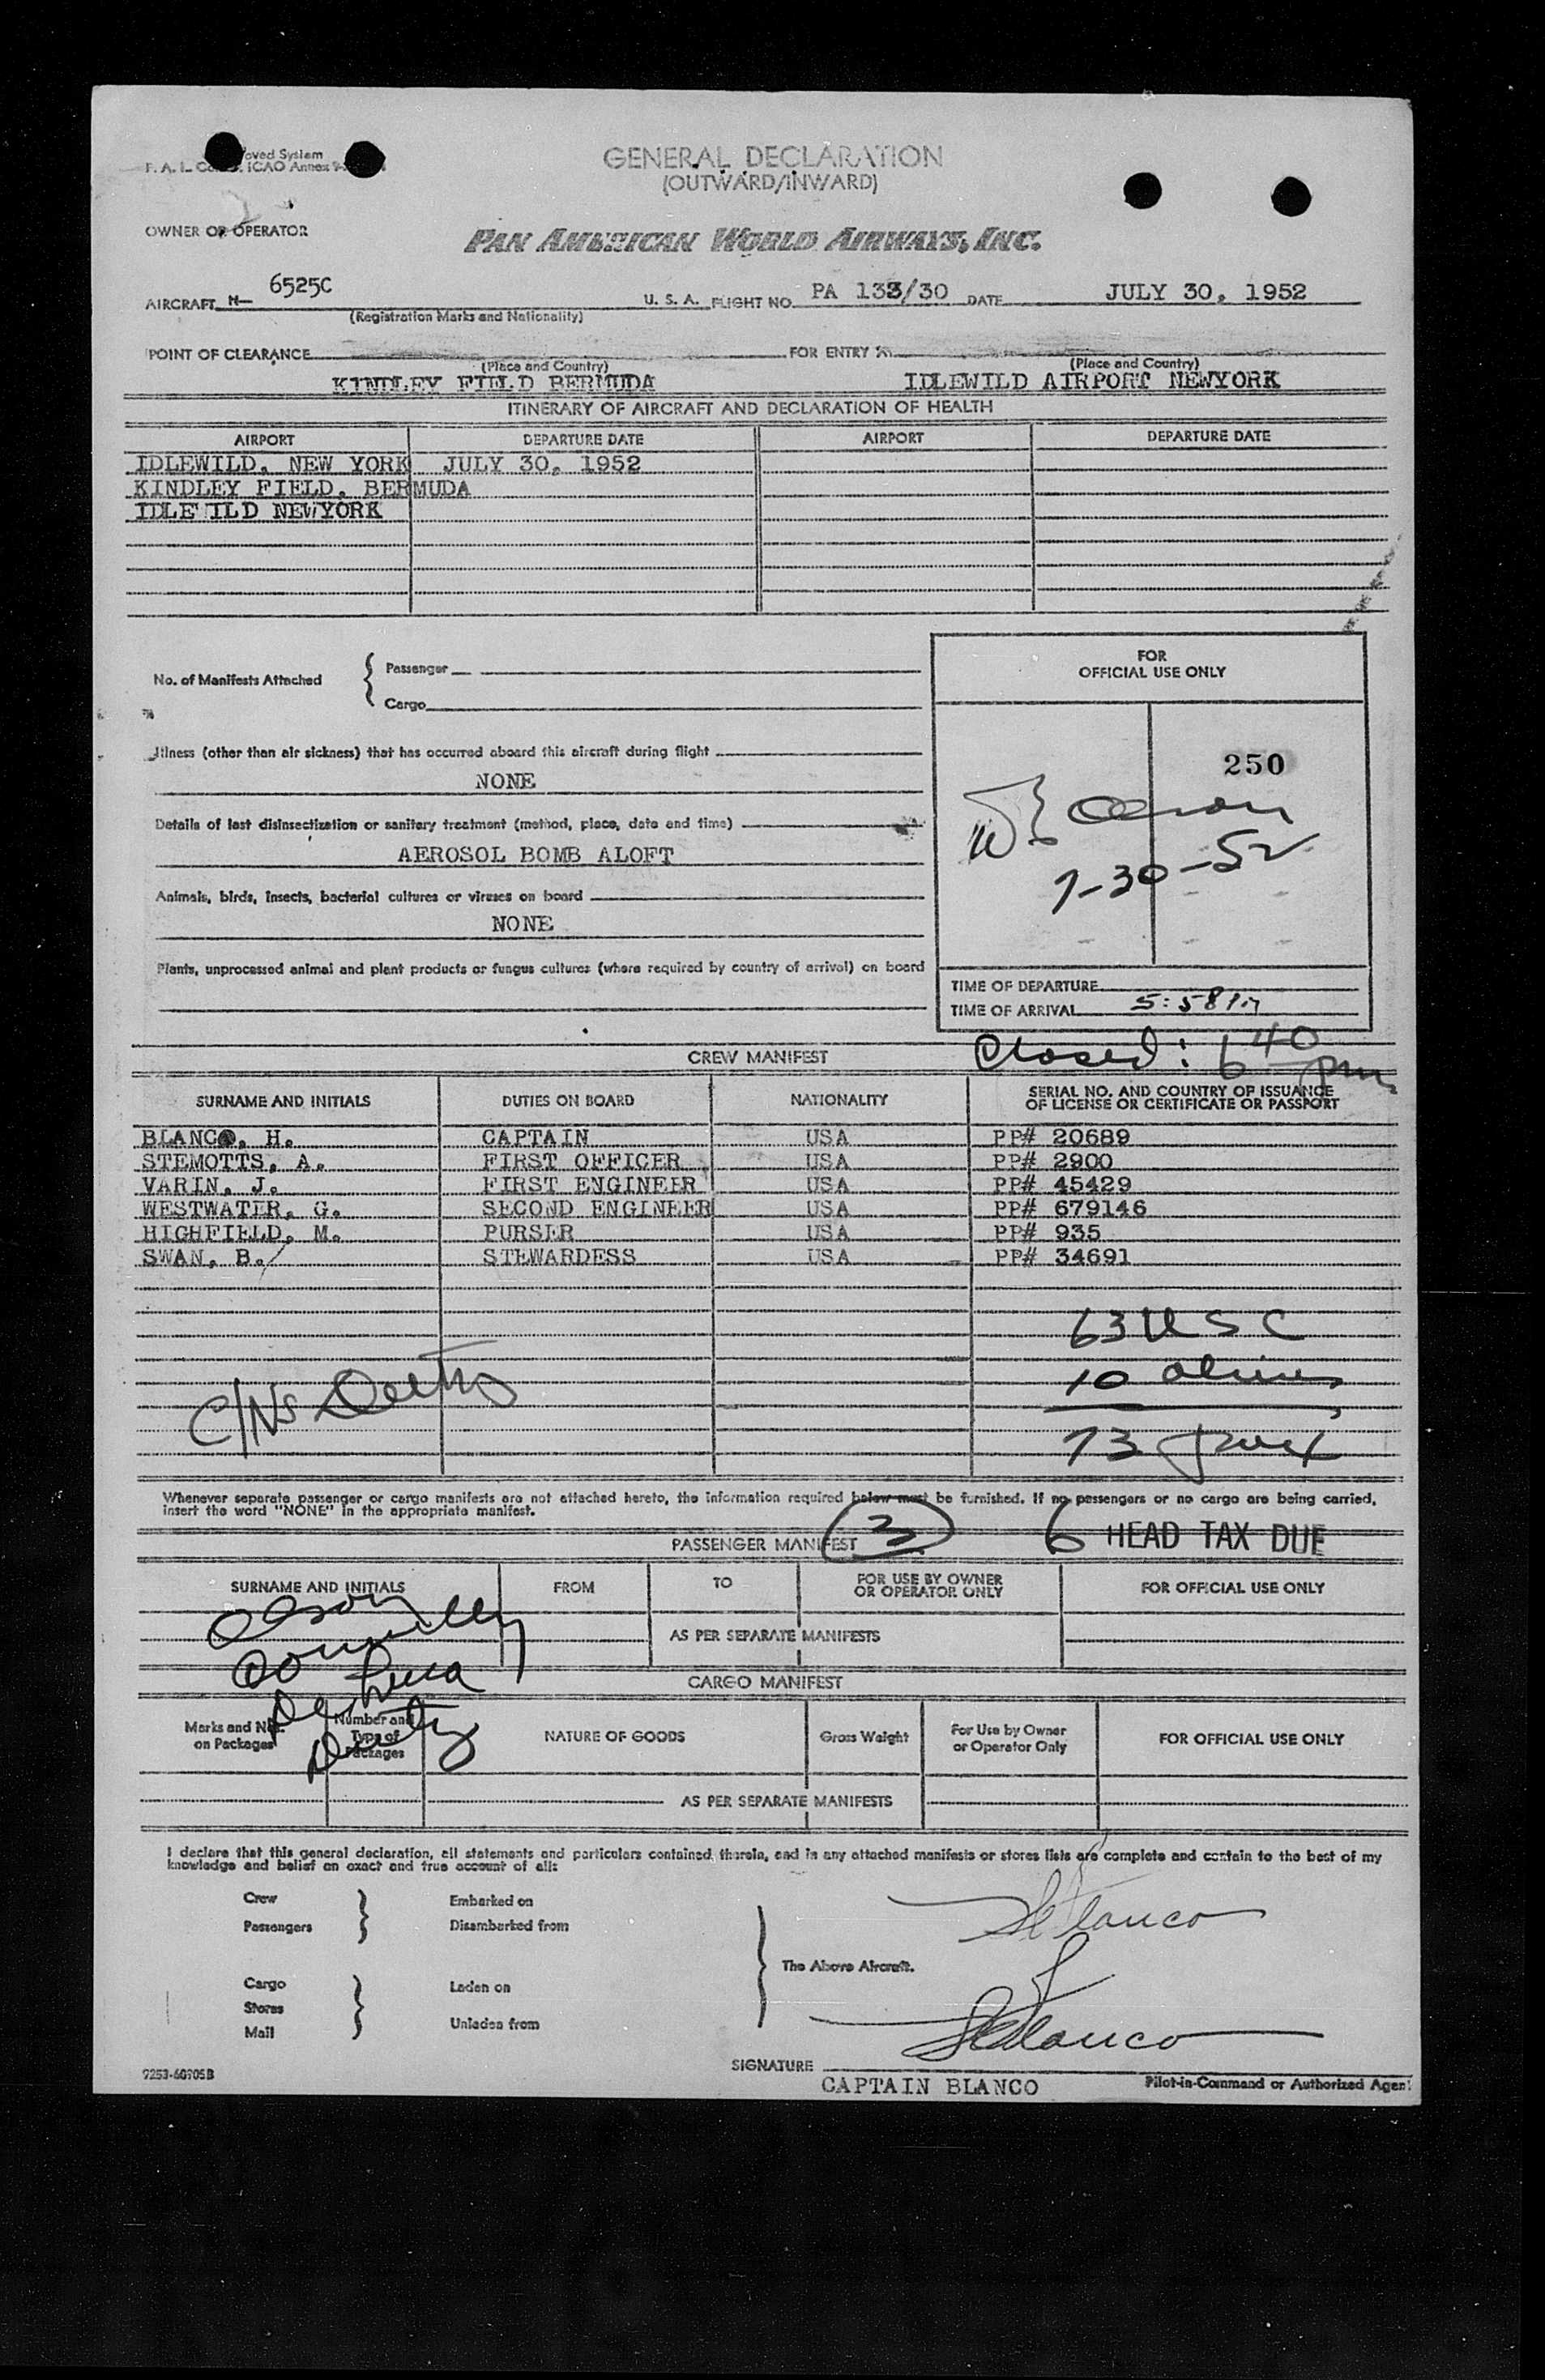 oved System
F. A. L. ICAO Annex 9
GENERAL DECLARATION
(OUTWARD/INWARD)
OWNER OR OPERATOR
PAN AMERICAN WORLD AIRWAYS, INC.
AIRCRAFT N— 6525C U. S. A. FLIGHT NO. PA 133/30 DATE JULY 30, 1952
(Registration Marks and Nationality)
POINT OF CLEARANCE FOR ENTRY
(Place and Country) (Place and Country)
KINDLEY FIELD BERMUDA IDLEWILD AIRPORT NEWYORK
ITINERARY OF AIRCRAFT AND DECLARATION OF HEALTH
AIRPORT DEPARTURE DATE AIRPORT DEPARTURE DATE
IDLEWILD, NEW YORK JULY 30, 1952
KINDLEY FIELD, BERMUDA
IDLE ILD NEWYORK
No. of Manifests Attached
Passenger
Cargo
Illness (other than air sickness) that has occurred aboard this aircraft during flight
NONE
Details of last disinsectization or sanitary treatment (method, place, date and time)
AEROSOL BOMB ALOFT
Animals, birds, insects, bacterial cultures or viruses on board
NONE
Plants, unprocessed animal and plant products or fungus cultures (where required by country of arrival) on board
FOR
OFFICIAL USE ONLY
250
Olson
7-30-52
TIME OF DEPARTURE
TIME OF ARRIVAL 5:58 PM
Closed: 6 40 pm
CREW MANIFEST
SURNAME AND INITIALS DUTIES ON BOARD NATIONALITY SERIAL NO. AND COUNTRY OF ISSUANCE
OF LICENSE OR CERTIFICATE OR PASSPORT
BLANCO, H. CAPTAIN USA PP# 20689
STEMOTTS, A. FIRST OFFICER USA PP# 2900
VARIN, J. FIRST ENGINEER USA PP# 45429
WESTWATER, G. SECOND ENGINEER USA PP# 679146
HIGHFIELD, M. PURSER USA PP# 935
SWAN, B. STEWARDESS USA PP# 34691
63 USC
10 aliens
73
C/Ns
Whenever separate passenger or cargo manifests are not attached hereto, the information required below must be furnished. If no passengers or no cargo are being carried,
insert the word "NONE" in the appropriate manifest.
PASSENGER MANIFEST 3 6 HEAD TAX DUE
SURNAME AND INITIALS FROM TO FOR USE BY OWNER
OR OPERATOR ONLY FOR OFFICIAL USE ONLY
Olson
Connelly
De Luca
AS PER SEPARATE MANIFESTS
CARGO MANIFEST
Marks and Nos.
on Packages Number and
Type of
Packages NATURE OF GOODS Gross Weight For Use by Owner
or Operator Only FOR OFFICIAL USE ONLY
AS PER SEPARATE MANIFESTS
I declare that this general declaration, all statements and particulars contained therein, and in any attached manifests or stores lists are complete and contain to the best of my
knowledge and belief an exact and true account of all:
Crew Embarked on
Passengers Disembarked from
The Above Aircraft.
Cargo Laden on
Stores
Mail Unladen from
H Blanco
H Blanco
SIGNATURE
CAPTAIN BLANCO Pilot-in-Command or Authorized Agent
7253-60905B